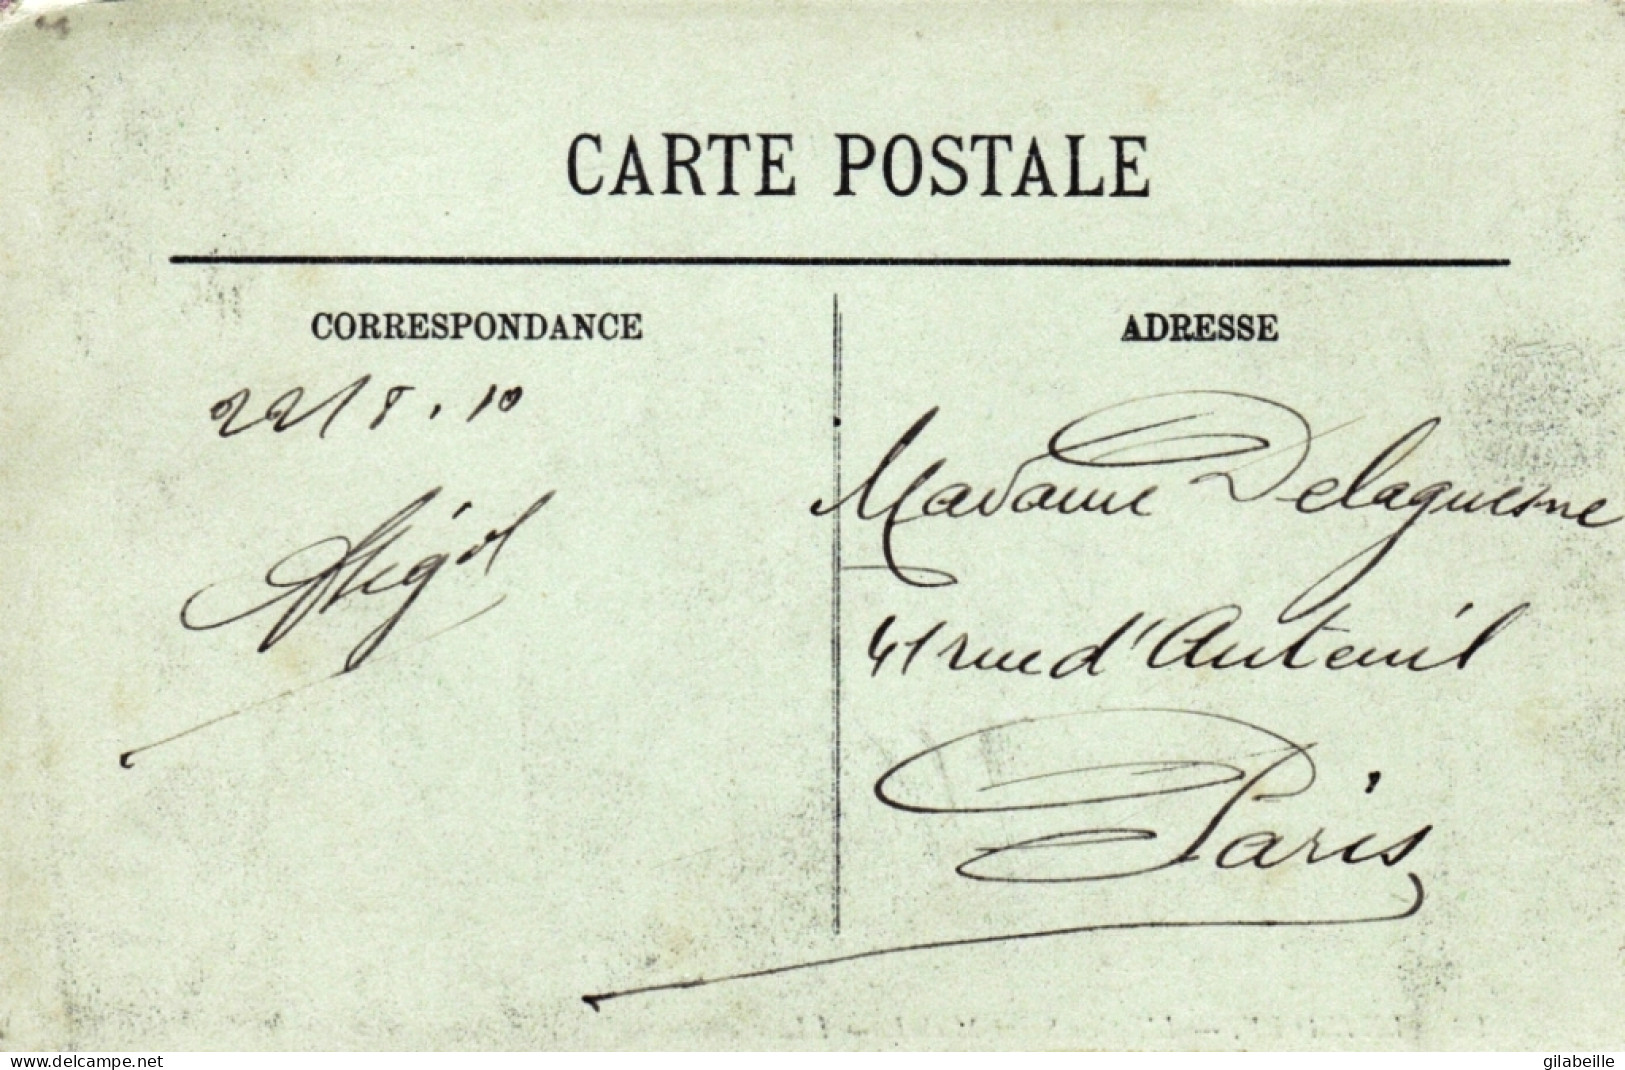 CARTE POSTALE
CORRESPONDANCE
ADRESSE
22/8.10
Madame Delaguesne
41 rue d'Auteuil
Paris
www.delcampe.net
gilabeille